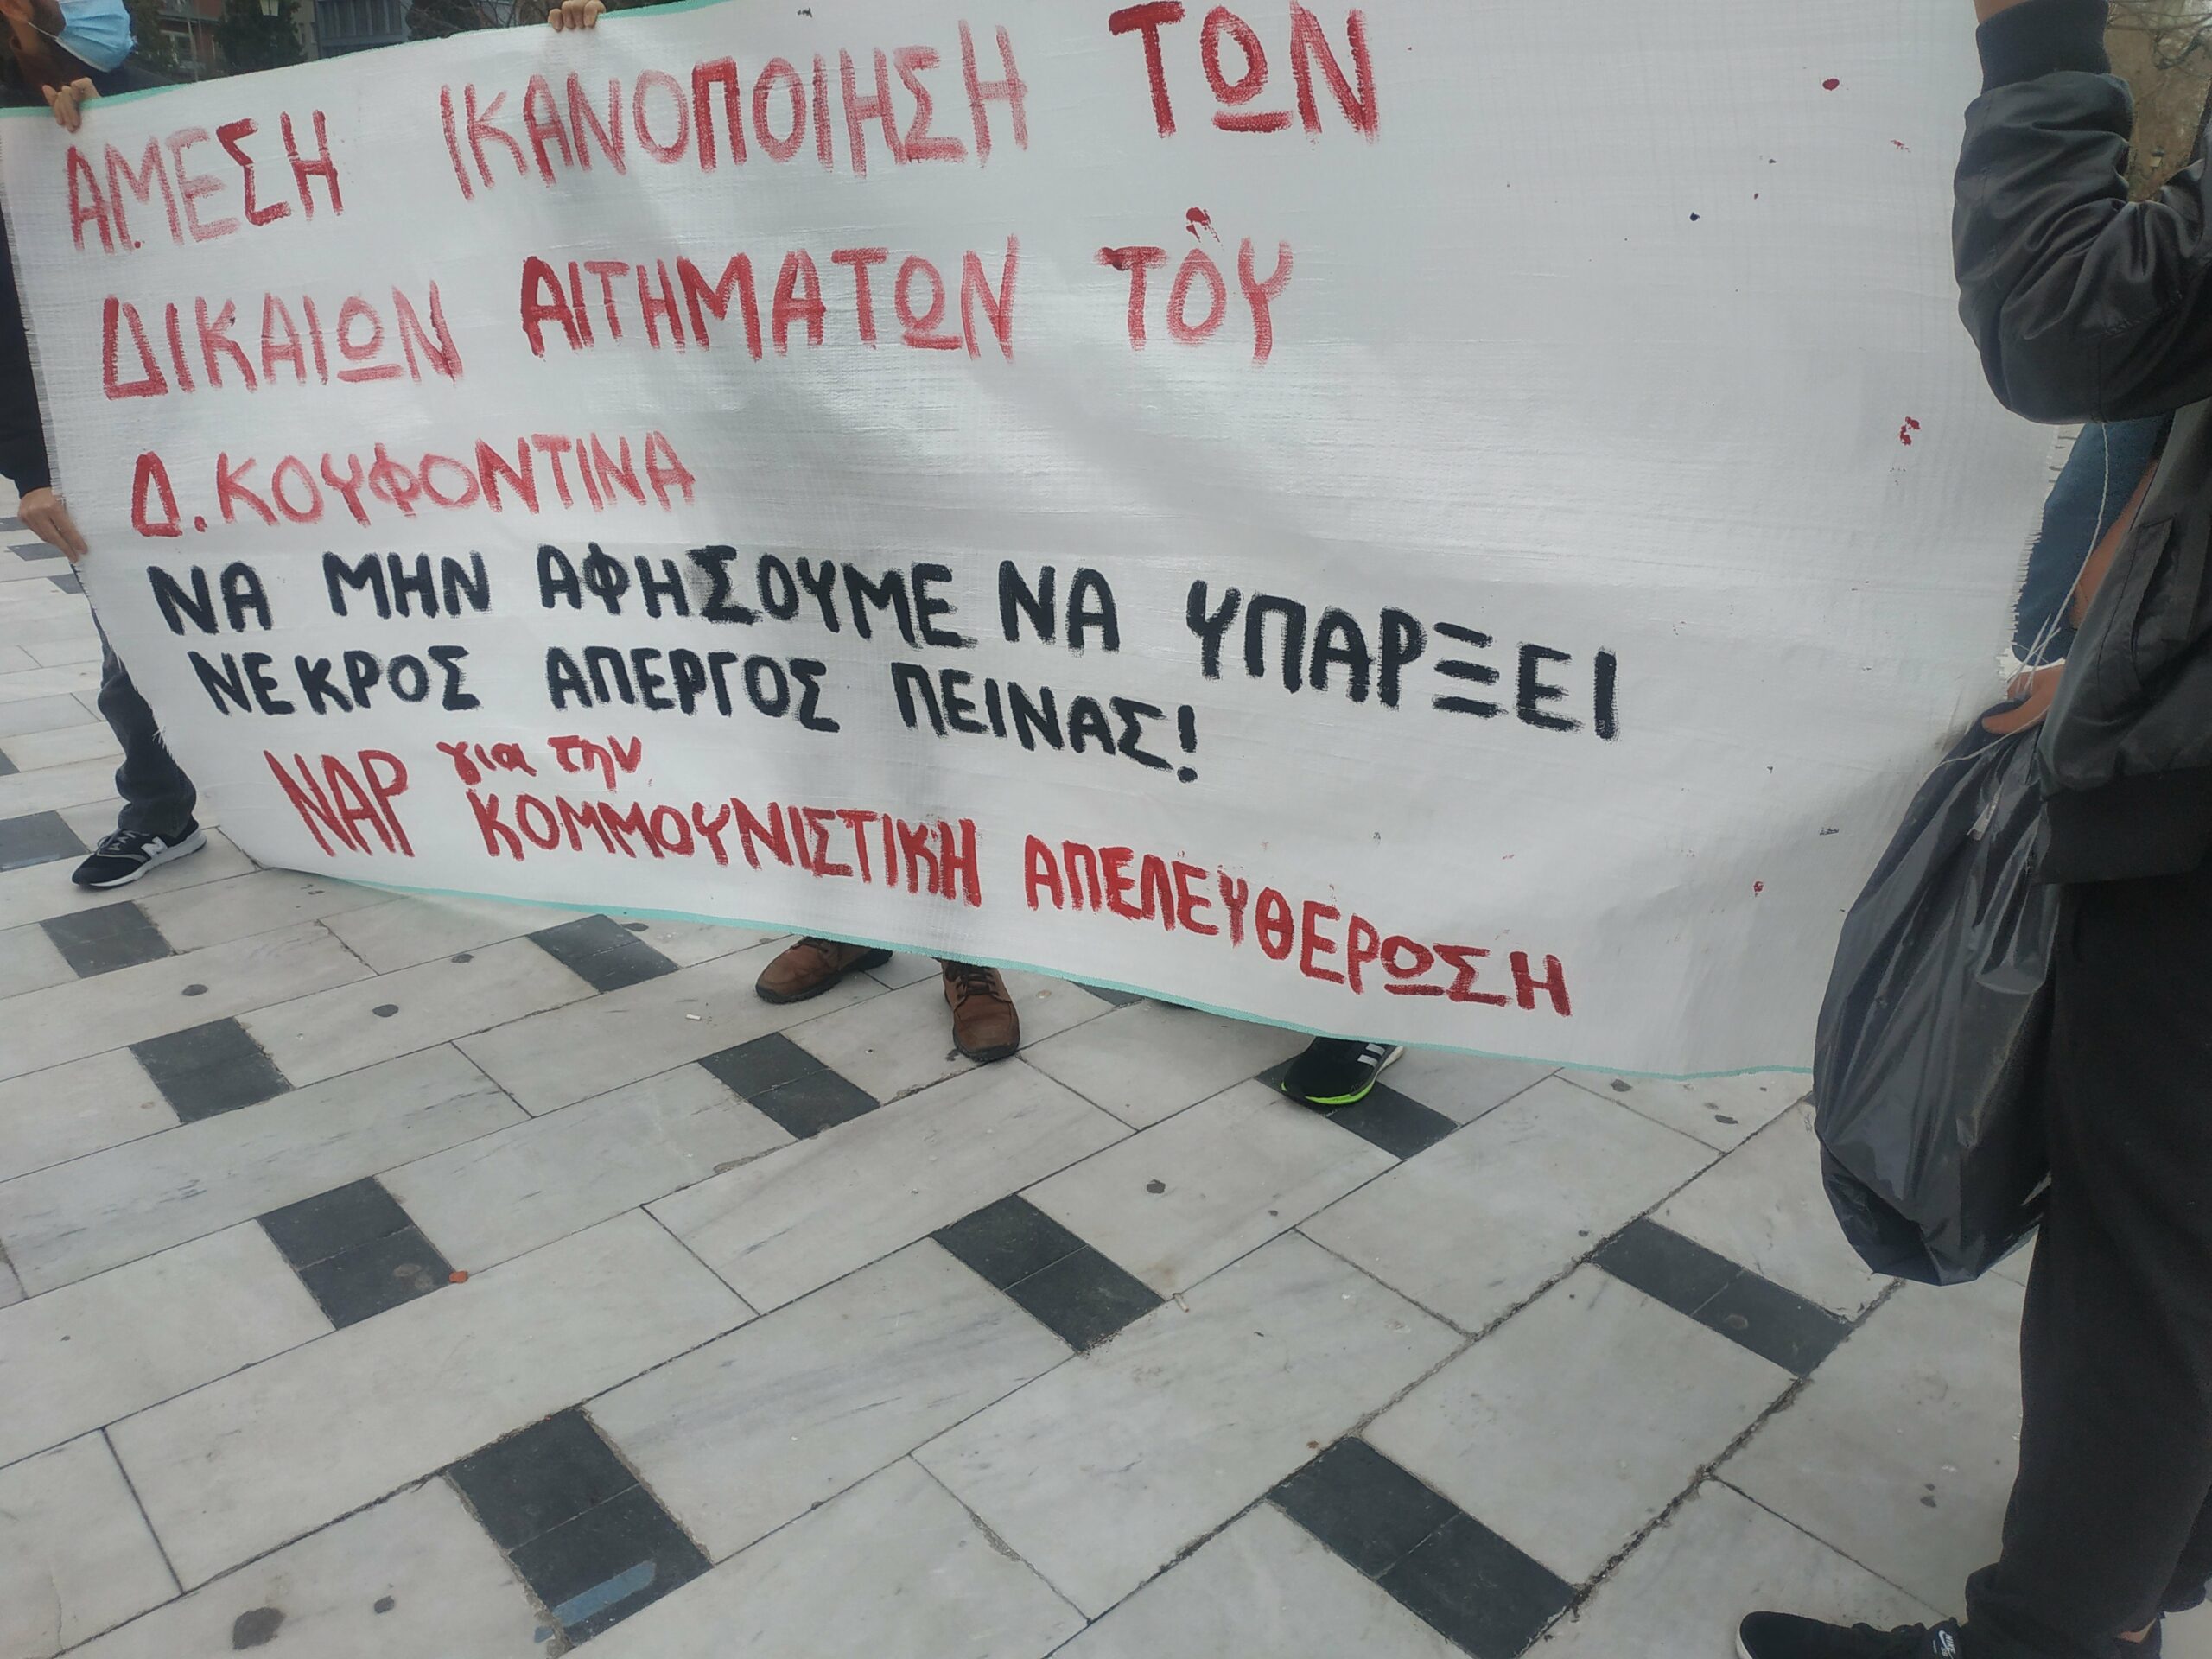 ΑΜΕΣΗ ΙΚΑΝΟΠΟΙΗΣΗ ΤΩΝ
ΔΙΚΑΙΩΝ ΑΙΤΗΜΑΤΩΝ ΤΟΥ
Δ. ΚΟΥΦΟΝΤΙΝΑ
ΝΑ ΜΗΝ ΑΦΗΣΟΥΜΕ ΝΑ ΥΠΑΡΞΕΙ
ΝΕΚΡΟΣ ΑΠΕΡΓΟΣ ΠΕΙΝΑΣ!
ΝΑΡ για την
ΚΟΜΜΟΥΝΙΣΤΙΚΗ ΑΠΕΛΕΥΘΕΡΩΣΗ